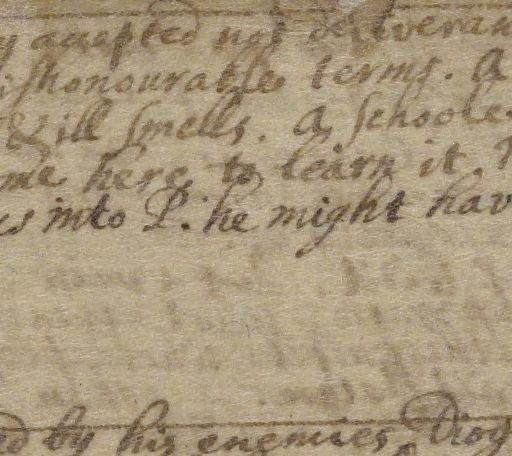 y accepted not deliveran
ishonourable terms. A
& ill smells. A schoole
me here to learn it.
es into P: he might hav
ed by his enemies, Diog